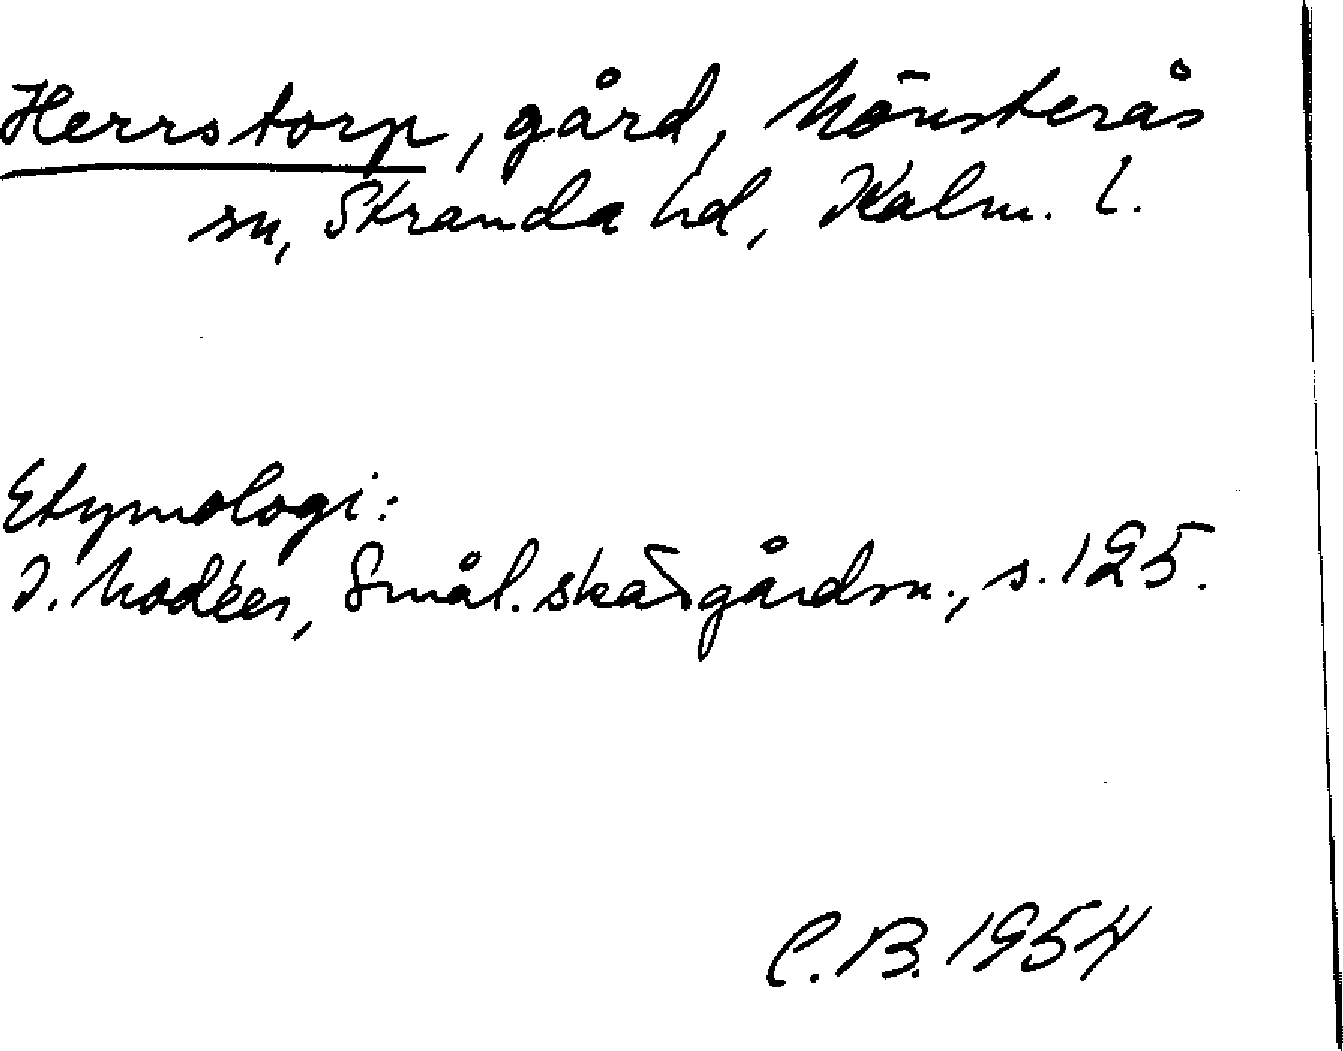 Herrstorp, gård, Mönsterås
sn, Stranda hd, Kalm. l.
Etymologi:
I. Modéer, Smål. skärgårdsn., s. 125.
C.B. 1954